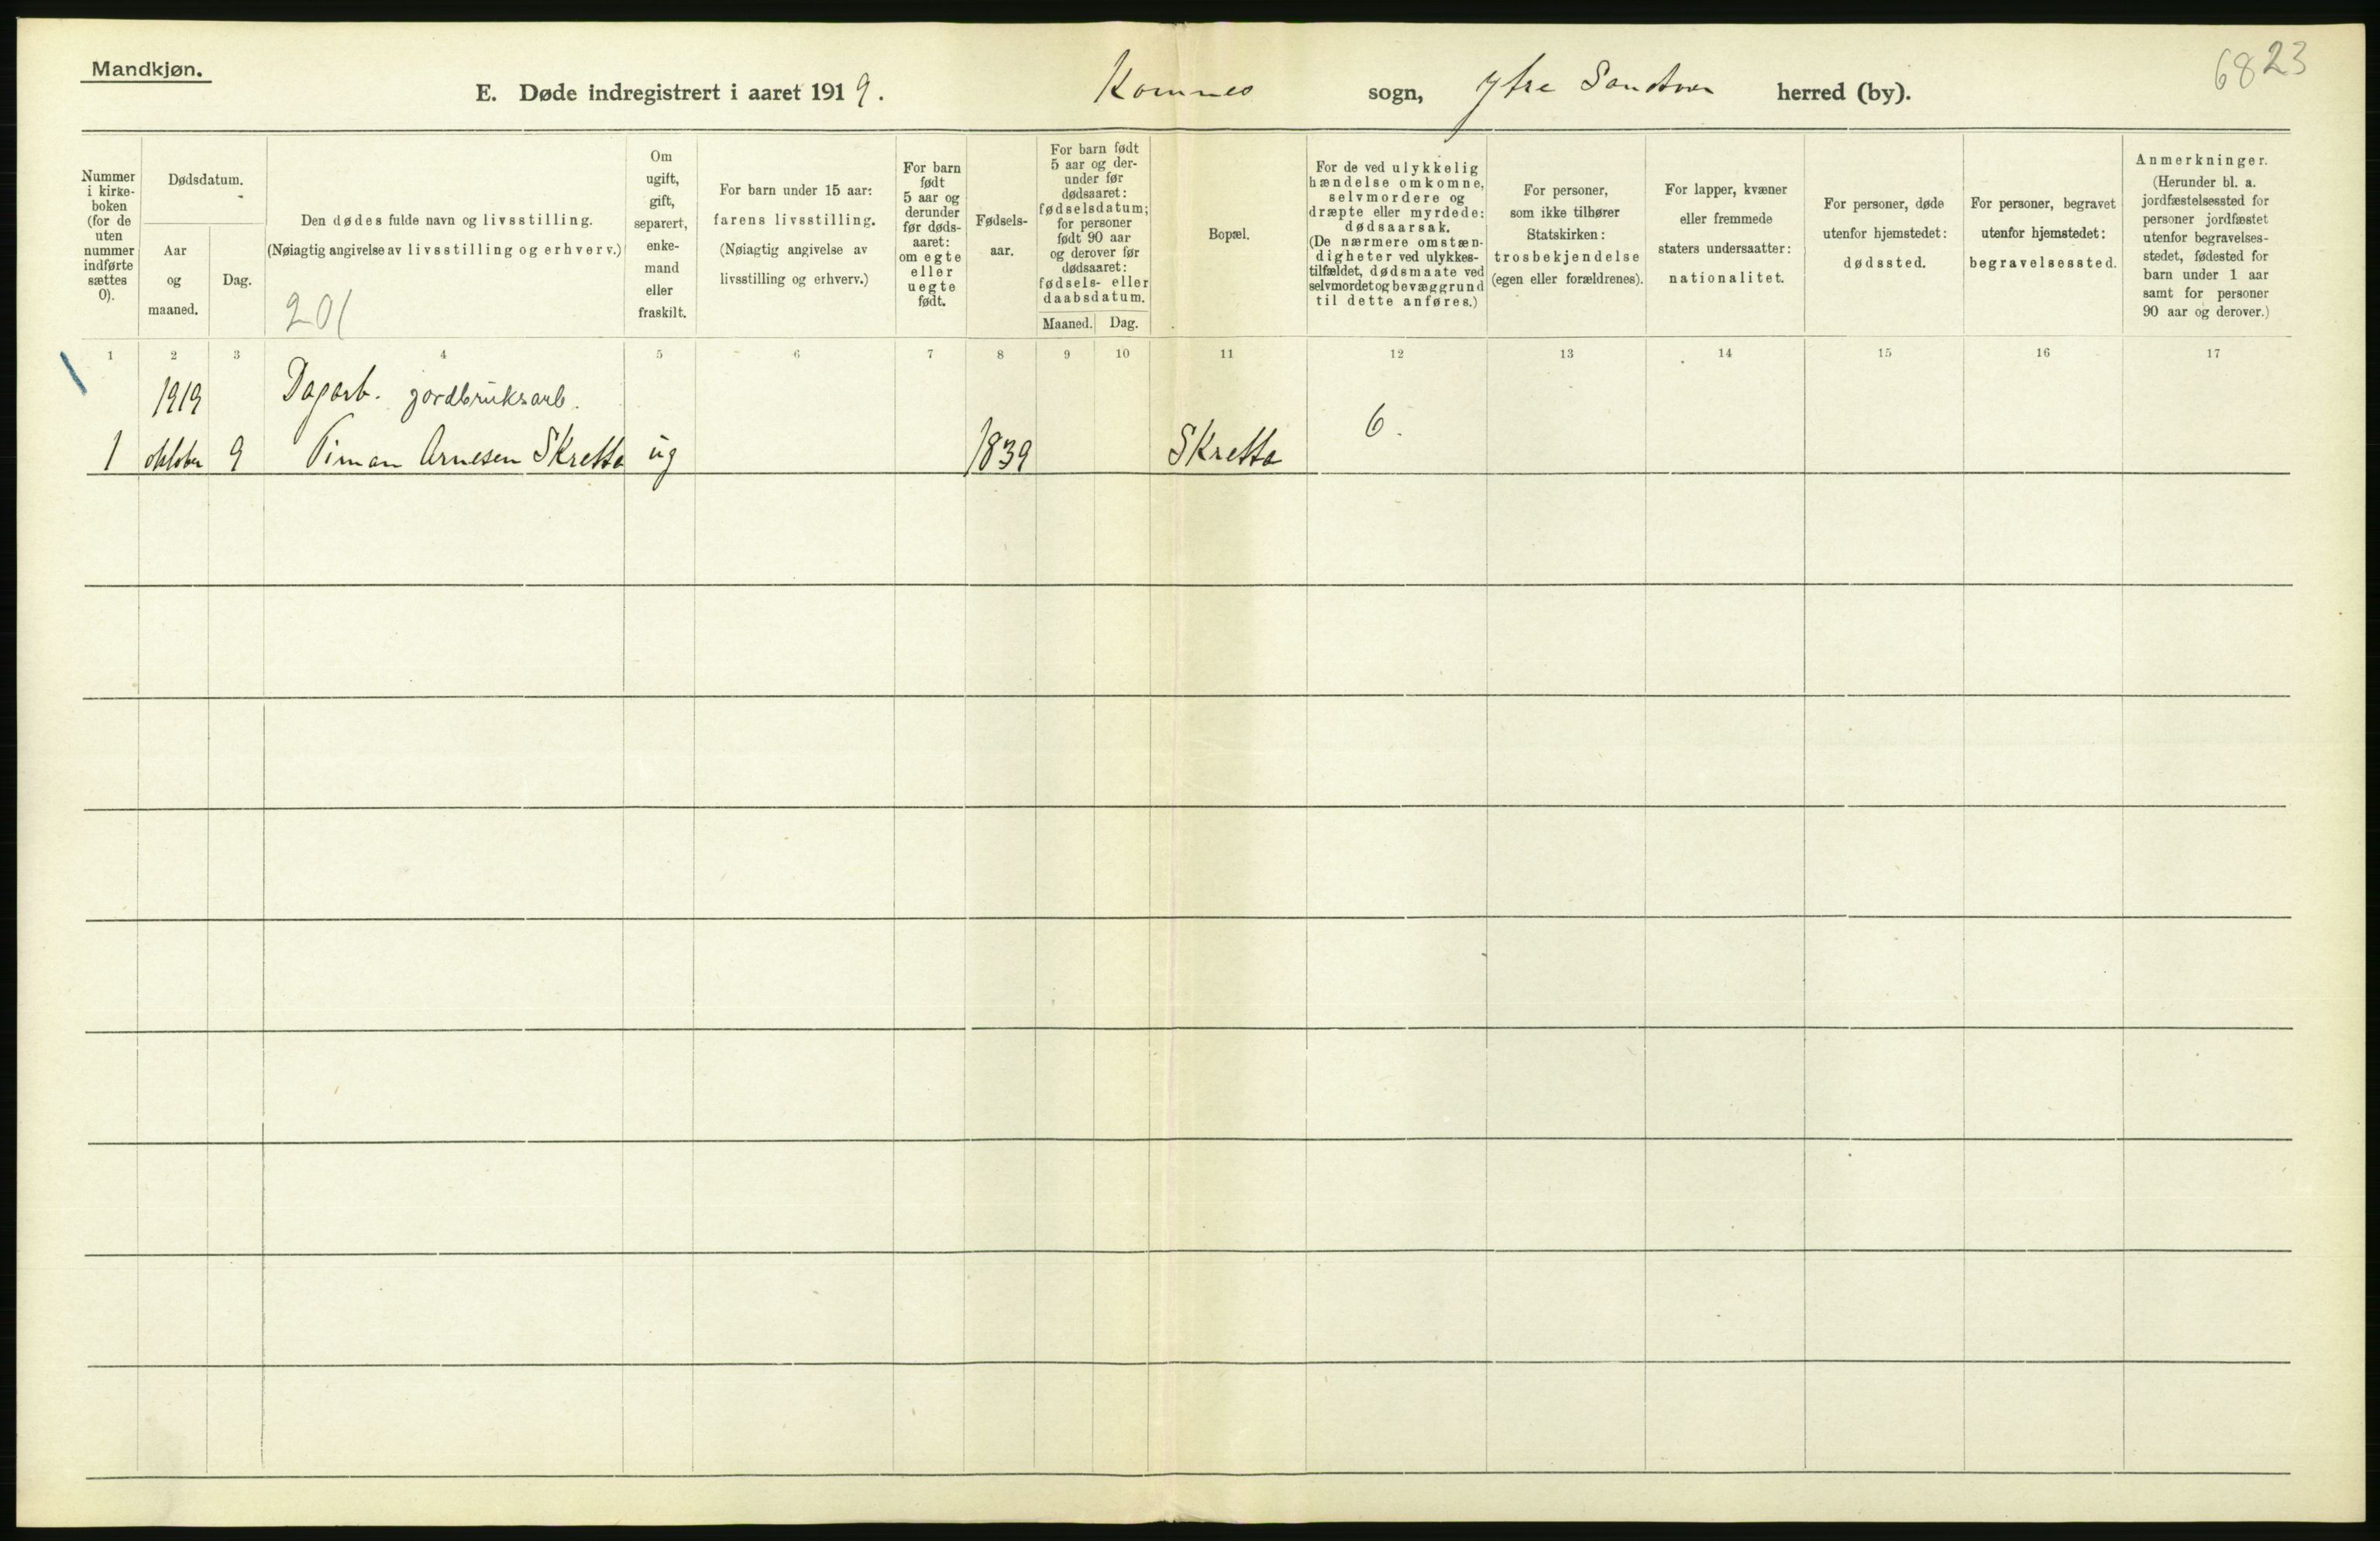 Mandkjøn.
6823
E. Døde indregistrert i aaret 1919. Komnes sogn, Ytre Sandsvær herred (by).
Nummer
i kirke-
boken
(for de
uten
nummer
indførte
sættes
0).
Dødsdatum.
Aar
og
maaned.
Dag.
Den dødes fulde navn og livsstilling.
(Nøiagtig angivelse av livsstilling og erhverv.)
201
Om
ugift,
gift,
separert,
enke-
mand
eller
fraskilt.
For barn under 15 aar:
farens livsstilling.
(Nøiagtig angivelse av
livsstilling og erhverv.)
For barn
født
5 aar og
derunder
før døds-
aaret:
om egte
eller
uegte
født.
Fødsels-
aar.
For barn født
5 aar og der-
under før
dødsaaret:
fødselsdatum;
for personer
født 90 aar
og derover før
dødsaaret:
fødsels- eller
daabsdatum.
Maaned. Dag.
Bopæl.
For de ved ulykkelig
hændelse omkomne,
selvmordere og
dræpte eller myrdede:
dødsaarsak.
(De nærmere omstæn-
digheter ved ulykkes-
tilfældet, dødsmaate ved
selvmordet og bevæggrund
til dette anføres.)
For personer,
som ikke tilhører
Statskirken:
trosbekjendelse
(egen eller forældrenes).
For lapper, kvæner
eller fremmede
staters undersaatter:
nationalitet.
For personer, døde
utenfor hjemstedet:
dødssted.
For personer, begravet
utenfor hjemstedet:
begravelsessted.
Anmerkninger.
(Herunder bl. a.
jordfæstelsessted for
personer jordfæstet
utenfor begravelses-
stedet, fødested for
barn under 1 aar
samt for personer
90 aar og derover.)
1 2 3 4 5 6 7 8 9 10 11 12 13 14 15 16 17
1919 Dagarb. jordbruksarb. 6.
1 oktober 9 Timan Arnesen Skretta ug 1839 Skretta